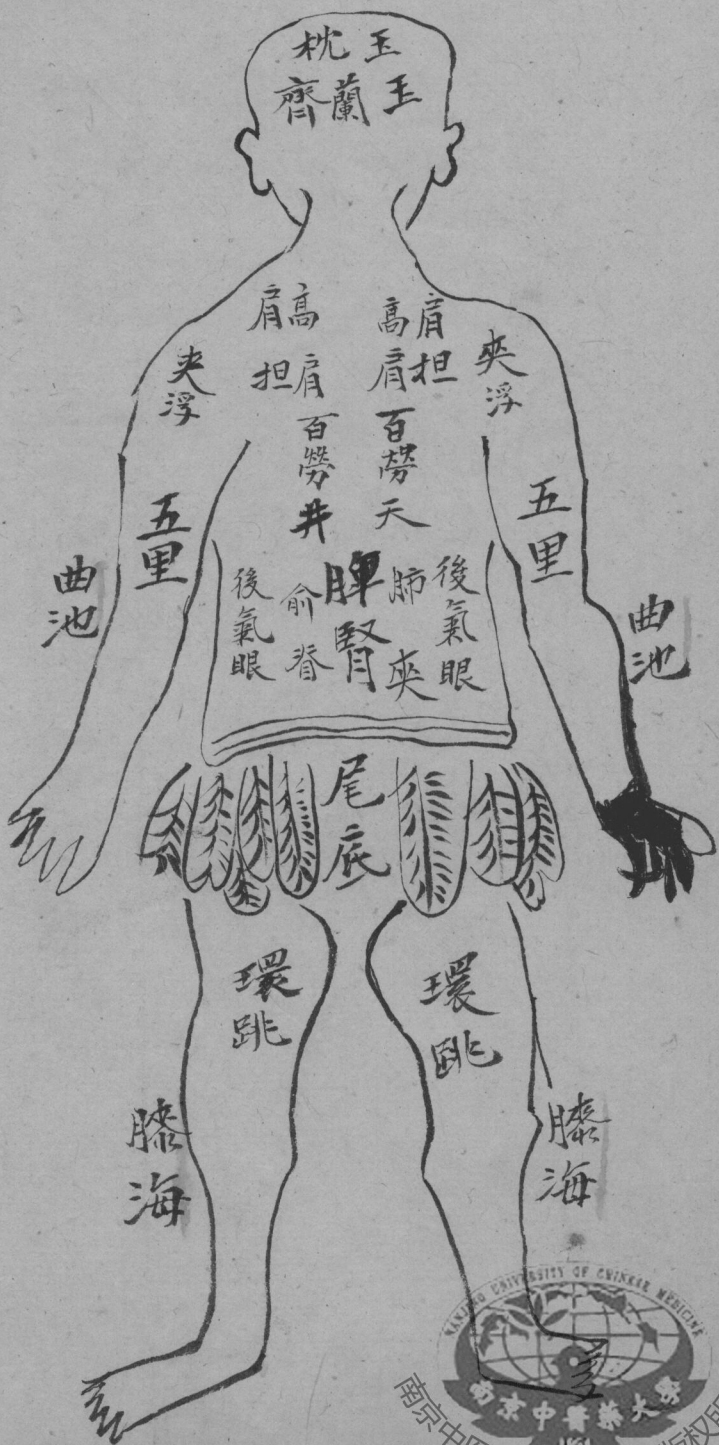 玉枕
玉蘭齊
肩高
高肩
肩担
肩担
夾浮
夾浮
百勞
百勞
井
天
五里
五里
曲池
曲池
後氣眼
俞脊
脾腎
肺夾
後氣眼
尾底
環跳
環跳
膝海
膝海
NANJING UNIVERSITY OF CHINESE MEDICINE
南京中醫藥大學
南京中
版权所